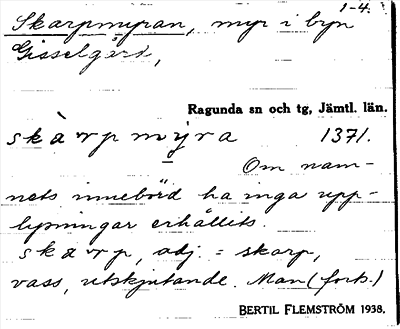 1-4.
Skarpmyran, myr i byn
Gisselgård,
Ragunda sn och tg, Jämtl. län.
skàrpmy̲ra 1371.
Om nam-
nets innebörd ha inga upp-
lysningar erhållits.
skarp, adj. = skarp,
vass, utskjutande. Man (forts.)
BERTIL FLEMSTRÖM 1938.